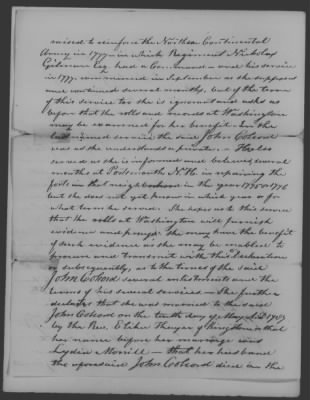 raised to reinforce the Northern Continental
Army in 1777 — in which Regiment Nicholas
Gilman Esq. had a Command — and his service
in 1777 commenced in September as she supposes
and continued several months, but of the term
of this service too she is ignorant and asks as
before that the rolls and records at Washington
may be examined for her benefit. In the
last named service the said John Colcord
was as she understands a private. — He also
served as she is informed and believes several
months at Portsmouth N.H. in repairing the
forts in that neighborhood in the year 1775 or 1776
but she does not yet know in which year or for
what term he served. She expects to this service
that the rolls at Washington will furnish
evidence and prays she may have the benefit
of such evidence as she may be enabled to
procure and transmit with this Declaration
or subsequently, as to the times of the said
John Colcord several enlistments and the
terms of his several services — She further
declares that she was married to the said
John Colcord on the tenth day of May A.D. 1787
by the Rev. Elihu Thayer of Kingston — that
her name before her marriage was
Lydia Morrill — that her husband
the aforesaid John Colcord died on the